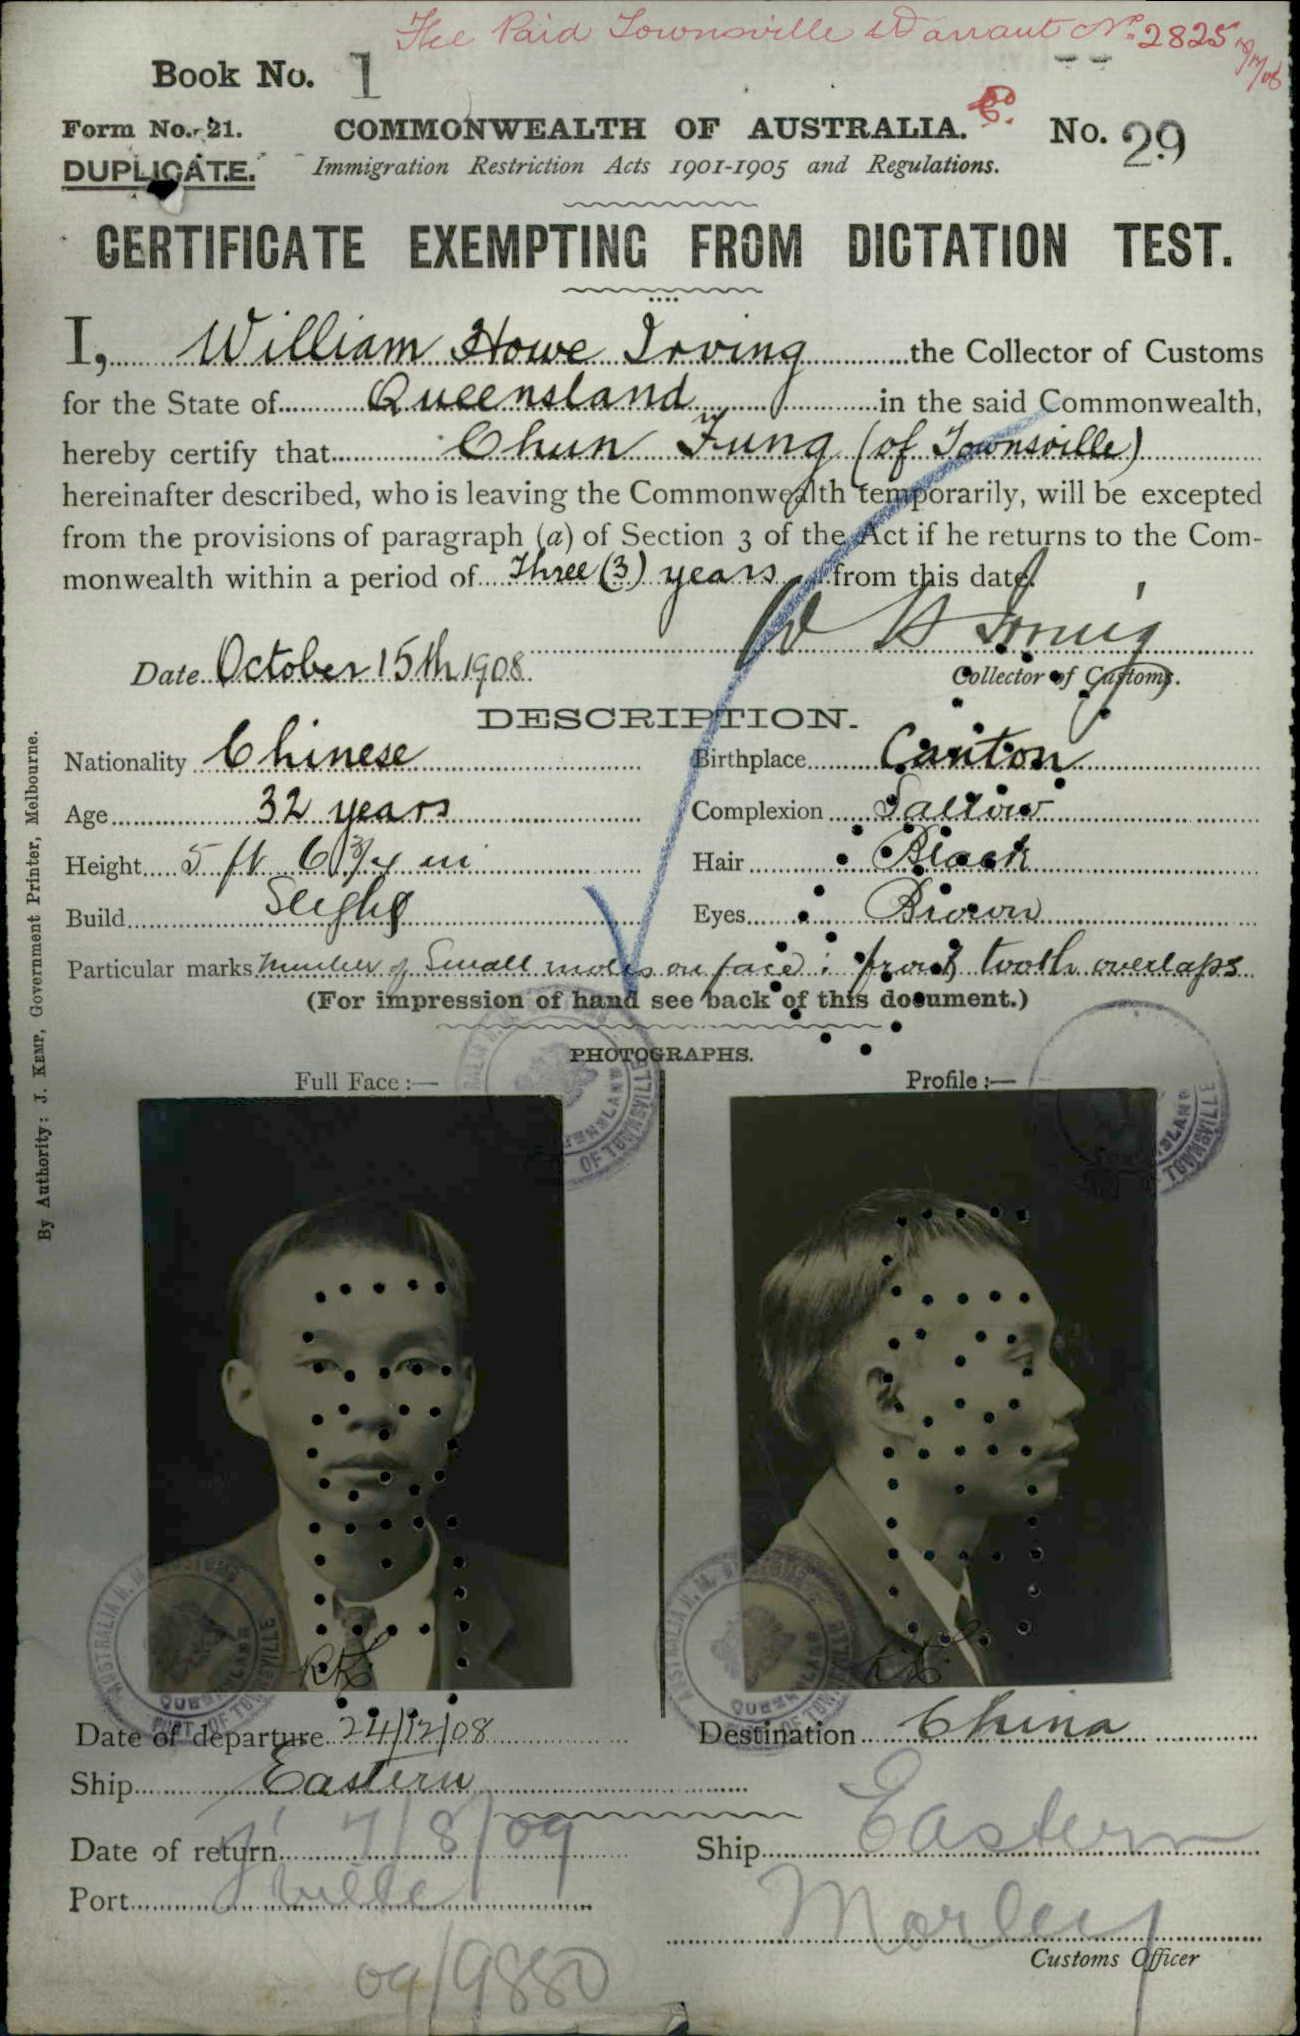 Fee Paid Townsville Warrant No. 2825
Book No. 1
Form No. 21.
COMMONWEALTH OF AUSTRALIA.
No. 29
DUPLICATE.
Immigration Restriction Acts 1901-1905 and Regulations.
CERTIFICATE EXEMPTING FROM DICTATION TEST.
I, William Howe Irving the Collector of Customs
for the State of Queensland in the said Commonwealth,
hereby certify that Chun Fung (of Townsville)
hereinafter described, who is leaving the Commonwealth temporarily, will be excepted
from the provisions of paragraph (a) of Section 3 of the Act if he returns to the Com-
monwealth within a period of Three (3) years from this date.
W H Irving
Date October 15th 1908
Collector of Customs.
DESCRIPTION.
Nationality Chinese
Birthplace Canton
Age 32 years
Complexion Sallow
Height 5 ft 6 3/4 in
Hair Black
Build Slight
Eyes Brown
Particular marks Number of Small moles on face; front tooth overlaps
(For impression of hand see back of this document.)
PHOTOGRAPHS.
Full Face :—
Profile :—
Date of departure 24/12/08
Destination China
Ship Eastern
Date of return 7/8/09
Ship Eastern
Port T'ville
Morley
Customs Officer
09/9880
By Authority: J. KEMP, Government Printer, Melbourne.